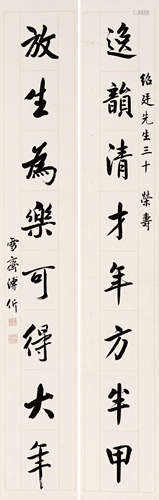 绍廷先生三十榮壽
逸韻清才年方半甲
放生為樂可得大年
雪齋溥伒